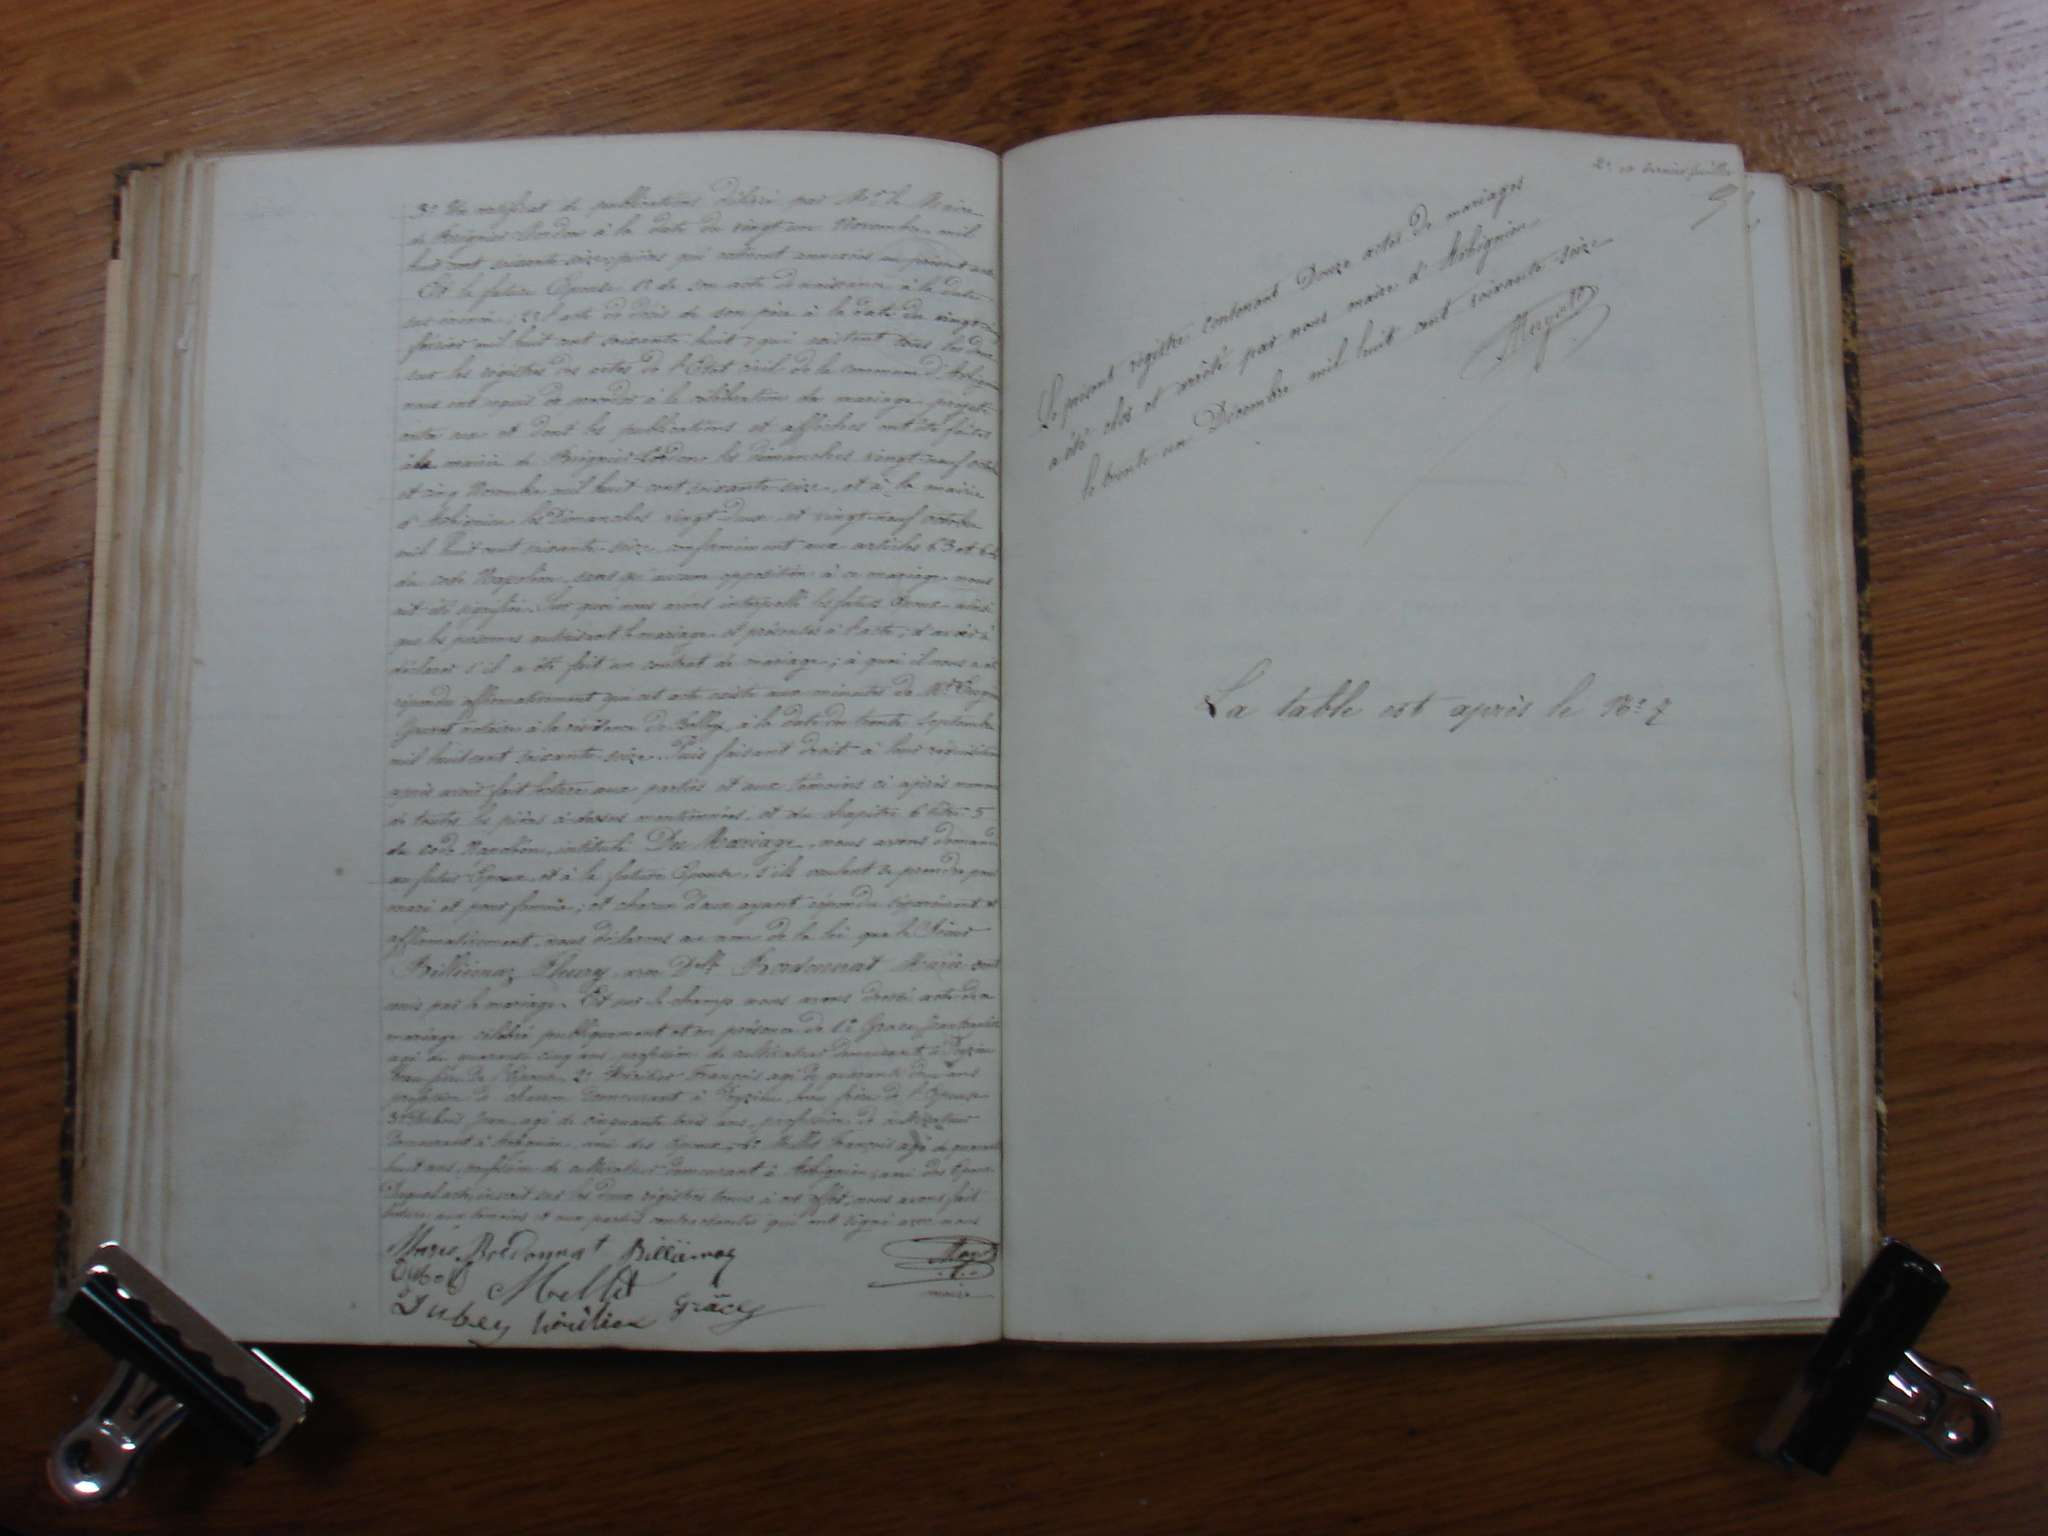 3° Un certificat de publications délivré par Mr le Maire
de Brégnier-Cordon à la date du vingt un Novembre mil
huit cent soixante seize, pièces qui resteront annexées au présent acte
Et la future Epouse 1° de son acte de naissance à la date
sus énoncée; 2° l'acte de décès de son père à la date du vingt
février mil huit cent soixante huit, qui existent tous les deux
sur les registres des actes de l'Etat civil de la commune d'Arbignieu
nous ont requis de procéder à la célébration du mariage projeté
entre eux et dont les publications et affiches ont été faites
à la mairie de Brégnier-Cordon les dimanches vingt-neuf octobre
et cinq Novembre mil huit cent soixante seize, et à la mairie
d'Arbignieu les Dimanches vingt-deux et vingt-neuf octobre
mil huit cent soixante-seize conformément aux articles 63 et 64
du code Napoléon, sans qu'aucune opposition à ce mariage nous
ait été signifiée. Sur quoi nous avons interpellé les futurs Epoux ainsi
que les personnes autorisant le mariage et présentes à l'acte, d'avoir à
déclarer s'il a été fait un contrat de mariage; à quoi il nous a été
répondu affirmativement que cet acte existe aux minutes de Mr
notaire à la résidence de Belley, à la date du trente Septembre
mil huit cent soixante-seize. Puis faisant droit à leur réquisition
après avoir fait lecture aux parties et aux témoins ci après nommés
de toutes les pièces ci-dessus mentionnées, et du chapitre 6 titre 5
du code Napoléon, intitulé Du Mariage, nous avons demandé
au futur Epoux et à la future Epouse, s'ils veulent se prendre pour
mari et pour femme; et chacun d'eux ayant répondu séparément et
affirmativement, nous déclarons au nom de la loi que le Sieur
Billiémaz Fleury avec Delle Bredonnat Marie sont
unis par le mariage. Et sur le champ nous avons dressé acte du
mariage célébré publiquement et en présence de 1°
agé de quarante cinq ans, profession de cultivateur demeurant à Peyzieu
beau frère de l'Epoux 2° François agé de quarante deux ans
profession de demeurant à Peyzieu, beau frère de l'Epouse
3° Dubois Jean, agé de cinquante trois ans, profession de cultivateur
demeurant à Arbignieu, ami des époux, 4° Mollet François agé de quarante
huit ans, profession de cultivateur demeurant à Arbignieu, ami des Epoux
Lequel acte, inscrit sur les deux registres tenus à cet effet, nous avons fait
lecture aux témoins et aux parties contractantes qui ont signé avec nous
Marie Bredonnat Billiémaz
Dubois Mollet
Dubey Grâces
maire
2e et dernier feuillet
Le présent registre contenant Douze actes de mariages
a été clos et arrêté par nous maire d'Arbignieu
le trente-un Décembre mil huit cent soixante-seize
La table est après le No 7